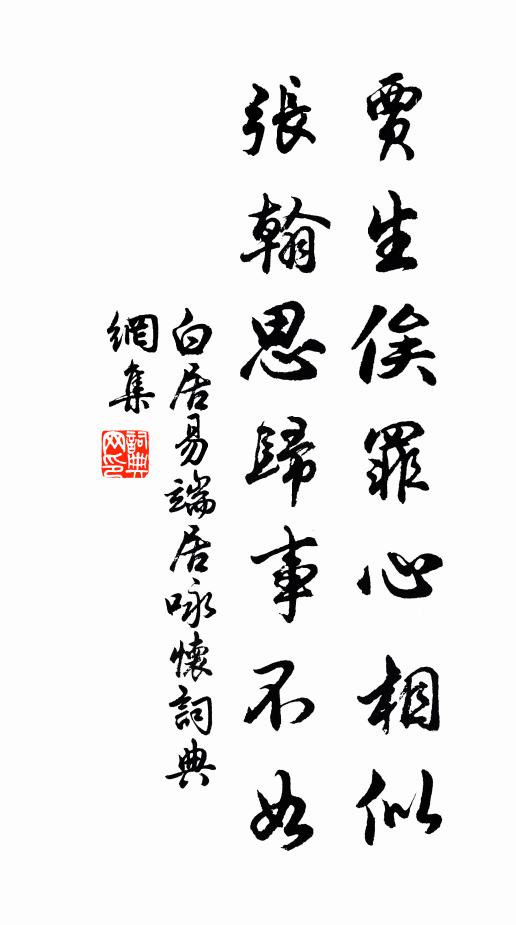 賈生俟罪心相似
張翰思歸事不如
白居易端居咏懷詞典
網集
詞典
网印